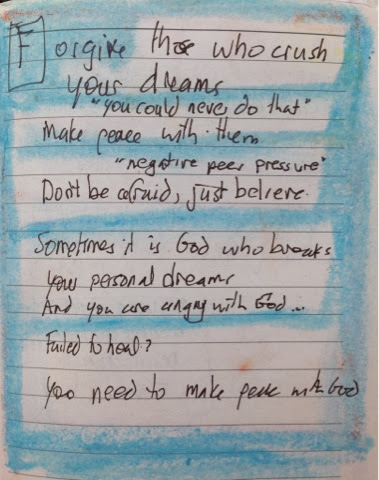 Forgive those who crush
your dreams
"you could never do that"
Make peace with them
"negative peer pressure"
Don't be afraid, just believe.
Sometimes it is God who breaks
your personal dreams
And you are angry with God...
Failed to heal?
You need to make peace with God